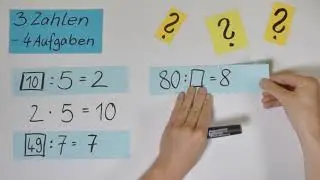 3 Zahlen
- 4 Aufgaben
?
?
?
10 : 5 = 2
2 · 5 = 10
49 : 7 = 7
80 : □ = 8